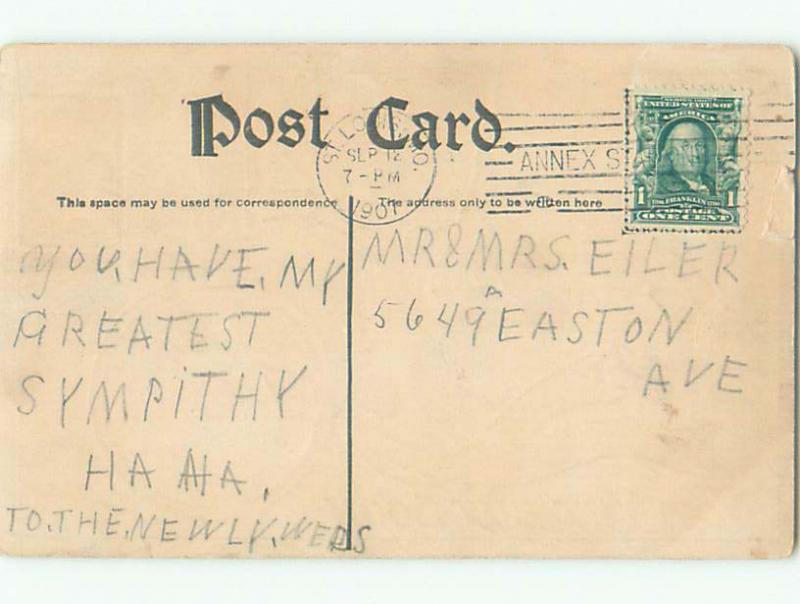 Post Card.
ST. LOUIS, MO.
SEP 12
7 - PM
1907
ANNEX
UNITED STATES OF
AMERICA
1 1
FRANKLIN
POSTAGE
ONE CENT
This space may be used for correspondence
The address only to be written here
YOU, HAVE, MY
GREATEST
SYMPITHY
HA HA,
TO. THE. NEWLY. WEDS
MR & MRS. EILER
5649A EASTON
AVE